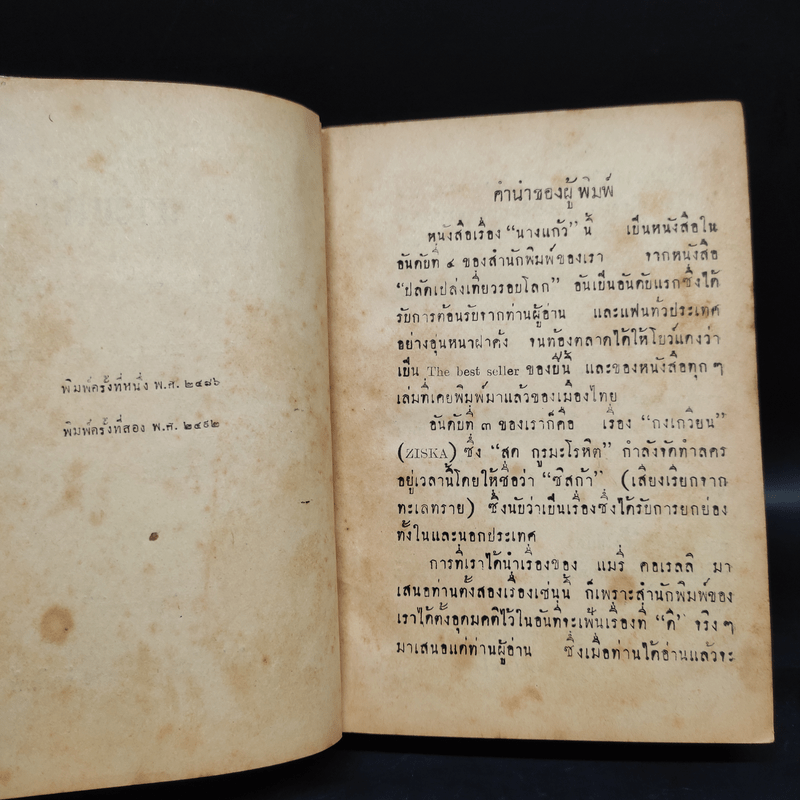 พิมพ์ครั้งที่หนึ่ง พ.ศ. ๒๔๘๖
พิมพ์ครั้งที่สอง พ.ศ. ๒๔๙๒
คำนำของผู้พิมพ์
หนังสือเรื่อง “นางแก้ว” นี้ เป็นหนังสือใน
อันดับที่ ๔ ของสำนักพิมพ์ของเรา จากหนังสือ
“ปลัดเปล่งเที่ยวรอบโลก” อันเป็นอันดับแรกซึ่งได้
รับการต้อนรับจากท่านผู้อ่าน และแฟนทั่วประเทศ
อย่างอุ่นหนาฝาคั่ง จนท้องตลาดได้ให้โบว์แดงว่า
เป็น The best seller ของปีนี้ และของหนังสือทุก ๆ
เล่มที่เคยพิมพ์มาแล้วของเมืองไทย
อันดับที่ ๓ ของเราก็คือ เรื่อง “กงเกวียน”
(ZISKA) ซึ่ง “สด กูรมะโรหิต” กำลังจัดทำละคร
อยู่เวลานี้โดยให้ชื่อว่า “ซิสก้า” (เสียงเรียกจาก
ทะเลทราย) ซึ่งนับว่าเป็นเรื่องซึ่งได้รับการยกย่อง
ทั้งในและนอกประเทศ
การที่เราได้นำเรื่องของ แมรี่ คอเรลลิ มา
เสนอท่านตั้งสองเรื่องเช่นนี้ ก็เพราะสำนักพิมพ์ของ
เราได้ตั้งอุดมคติไว้ในอันที่จะเฟ้นเรื่องที่ “ดี” จริง ๆ
มาเสนอแด่ท่านผู้อ่าน ซึ่งเมื่อท่านได้อ่านแล้วจะ